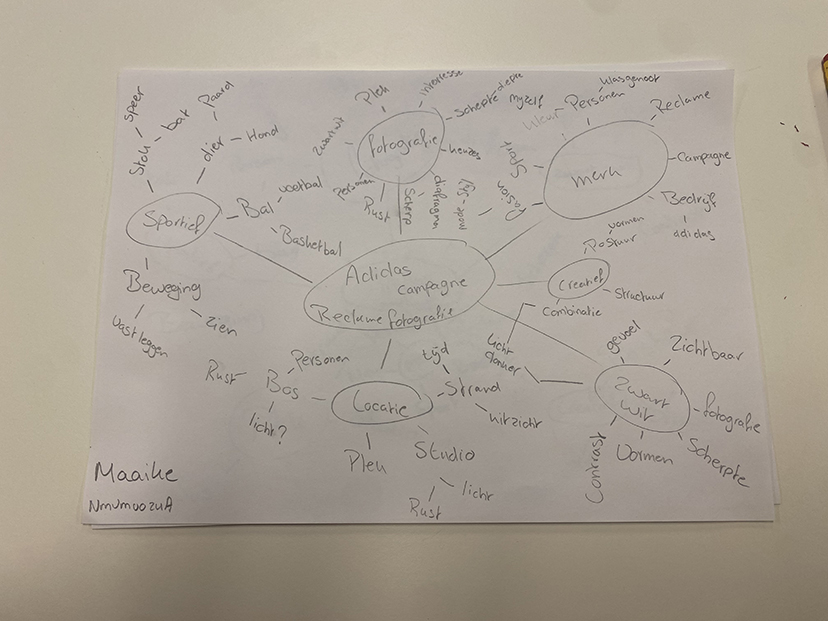 speer
Stok
bat
Paard
dier
Hond
Sportief
Bal
voetbal
Basketbal
Beweging
Vastleggen
Zien
Plek
interesse
Scherpte diepte
zwart wit
fotografie
keuzes
Personen
Rust
Scherp
diafragma
Klasgenoot
myself
Personen
kleur
Reclame
Sport
merk
Campagne
Pasion
Bedrijf
adidas
Adidas
campagne
Reclame fotografie
vormen
Postuur
Creatief
Structuur
Combinatie
licht
donker
gevoel
Zichtbaar
Zwart
wit
fotografie
Scherpte
Vormen
Contrast
Personen
Rust
Bos
licht?
Locatie
tijd
Strand
uitzicht
Plek
Studio
licht
Rust
Maaike
NMVMVO2UA